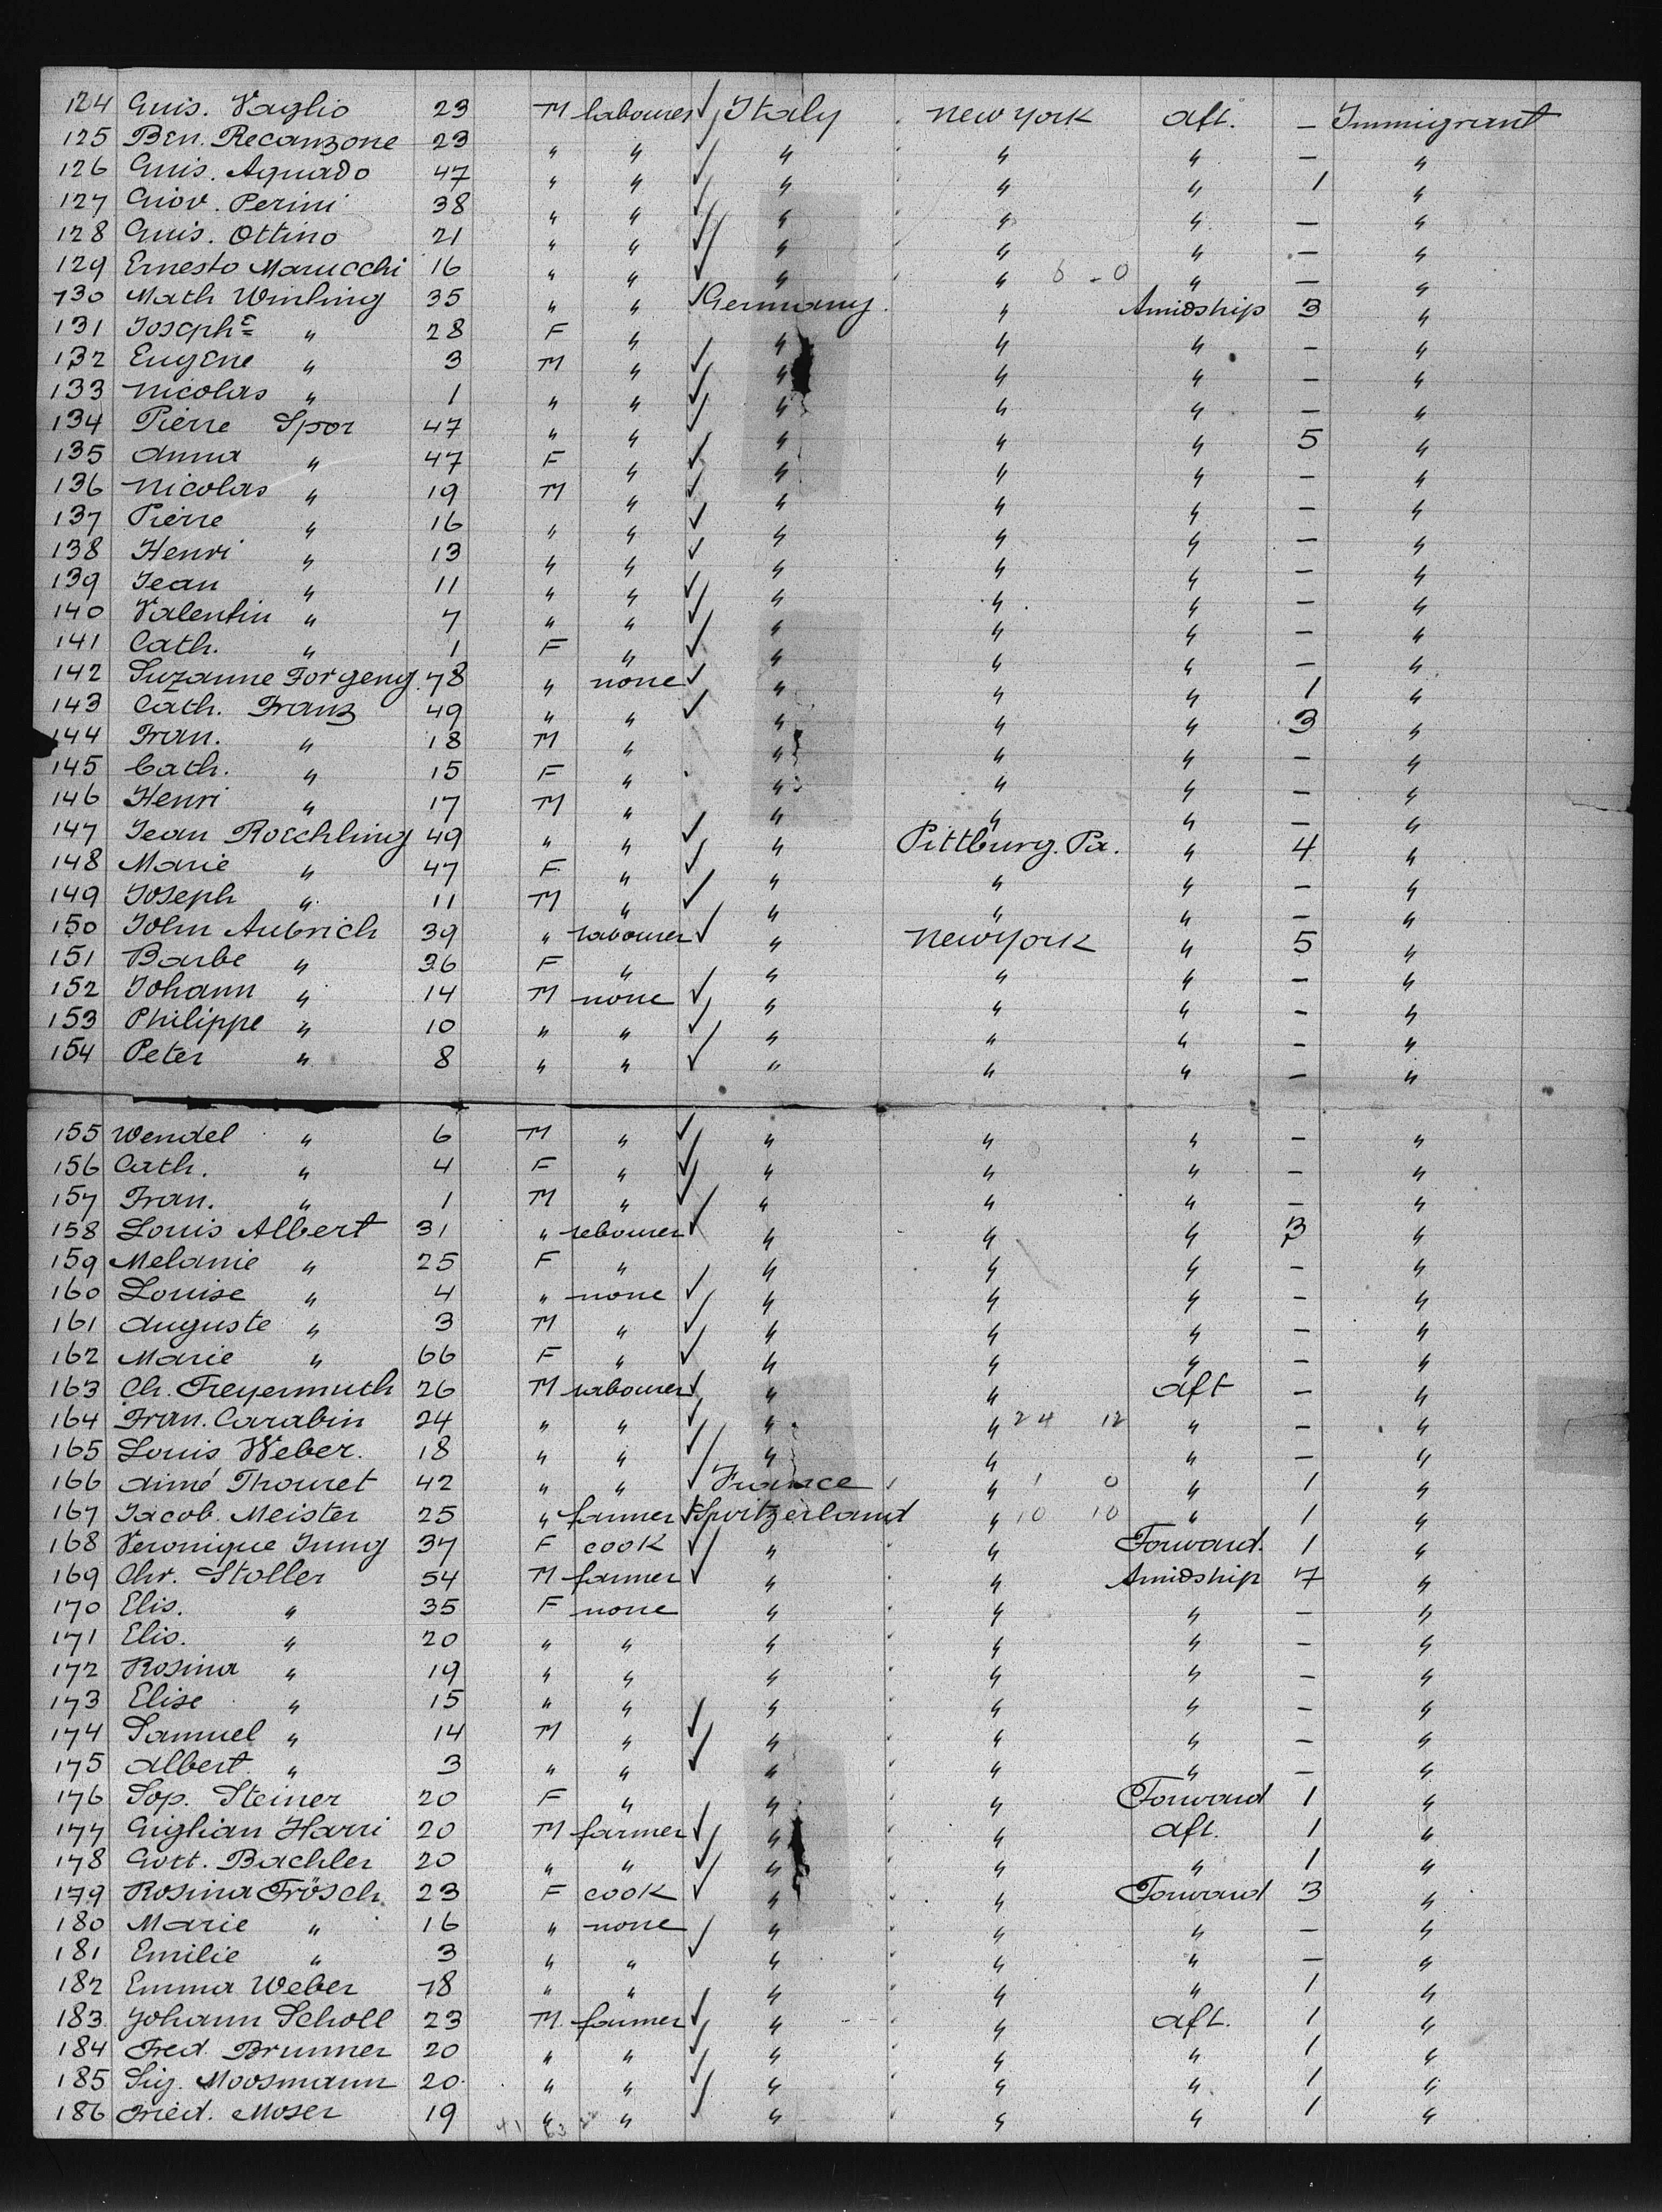 124 Guis. Vaglio 23 M labourer ✓ Italy New York aft. — Immigrant
125 Ben. Recanzone 23 " " ✓ " " " — "
126 Guis. Aquado 47 " " ✓ " " " 1 "
127 Giov. Perini 38 " " ✓ " " " — "
128 Guis. Ottino 21 " " ✓ " " " — "
129 Ernesto Marucchi 16 " " ✓ " " 6 - 0 " — "
130 Math Winling 35 " " ✓ Germany " Amidship 3 "
131 Josephe " 28 F " " " " — "
132 Eugene " 3 M " ✓ " " " — "
133 Nicolas " 1 " " ✓ " " " — "
134 Pierre Spor 47 " " ✓ " " " 5 "
135 Anna " 47 F " ✓ " " " — "
136 Nicolas " 19 M " ✓ " " " — "
137 Pierre " 16 " " ✓ " " " — "
138 Henri " 13 " " ✓ " " " — "
139 Jean " 11 " " ✓ " " " — "
140 Valentin " 7 " " ✓ " " " — "
141 Cath. " 1 F " ✓ " " " — "
142 Suzanne Forgeng 78 " none ✓ " " " 1 "
143 Cath. Franz 49 " " ✓ " " " 3 "
144 Fran. " 18 M " " " " — "
145 Cath. " 15 F " " " " — "
146 Henri " 17 M " " " " — "
147 Jean Roechling 49 " " ✓ " Pittburg. Pa. " 4 "
148 Marie " 47 F " ✓ " " " — "
149 Joseph " 11 M " ✓ " " " — "
150 John Aubrich 39 " labourer ✓ " New York " 5 "
151 Barbe " 36 F " " " " — "
152 Johann " 14 M none ✓ " " " — "
153 Philippe " 10 " " ✓ " " " — "
154 Peter " 8 " " ✓ " " " — "
155 Wendel " 6 M " ✓ " " " — "
156 Cath. " 4 F " ✓ " " " — "
157 Fran. " 1 M " ✓ " " " — "
158 Louis Albert 31 " labourer ✓ " " " 3 "
159 Melanie " 25 F " " " " — "
160 Louise " 4 " none ✓ " " " — "
161 Auguste " 3 M " ✓ " " " — "
162 Marie " 66 F " ✓ " " " — "
163 Ch. Freyermuth 26 M labourer ✓ " " aft — "
164 Fran. Carabin 24 " " ✓ " " 24 12 " — "
165 Louis Weber. 18 " " ✓ " " " — "
166 Aimé Thouret 42 " " ✓ France " 1 0 " 1 "
167 Jacob. Meister 25 " farmer ✓ Switzerland " 10 10 " 1 "
168 Veronique Jung 37 F cook ✓ " " Forward. 1 "
169 Chr. Stoller 54 M farmer ✓ " " Amidship 7 "
170 Elis. " 35 F none " " " — "
171 Elis. " 20 " " " " " — "
172 Rosina " 19 " " " " " — "
173 Elise " 15 " " " " " — "
174 Samuel " 14 M " ✓ " " " — "
175 Albert " 3 " " ✓ " " " — "
176 Sop. Steiner 20 F " " " Forward 1 "
177 Giglian Harri 20 M farmer ✓ " " aft. 1 "
178 Gott. Bachler 20 " " ✓ " " " 1 "
179 Rosina Frösch 23 F cook ✓ " " Forward 3 "
180 Marie " 16 " none " " " — "
181 Emilie " 3 " " ✓ " " " — "
182 Emma Weber 18 " " " " " 1 "
183. Johann Scholl 23 M. farmer ✓ " " aft. 1 "
184 Fred. Brunner 20 " " ✓ " " " 1 "
185 Sig. Moosmann 20 " " ✓ " " " 1 "
186 Fried. Moser 19 " " ✓ " " " 1 "